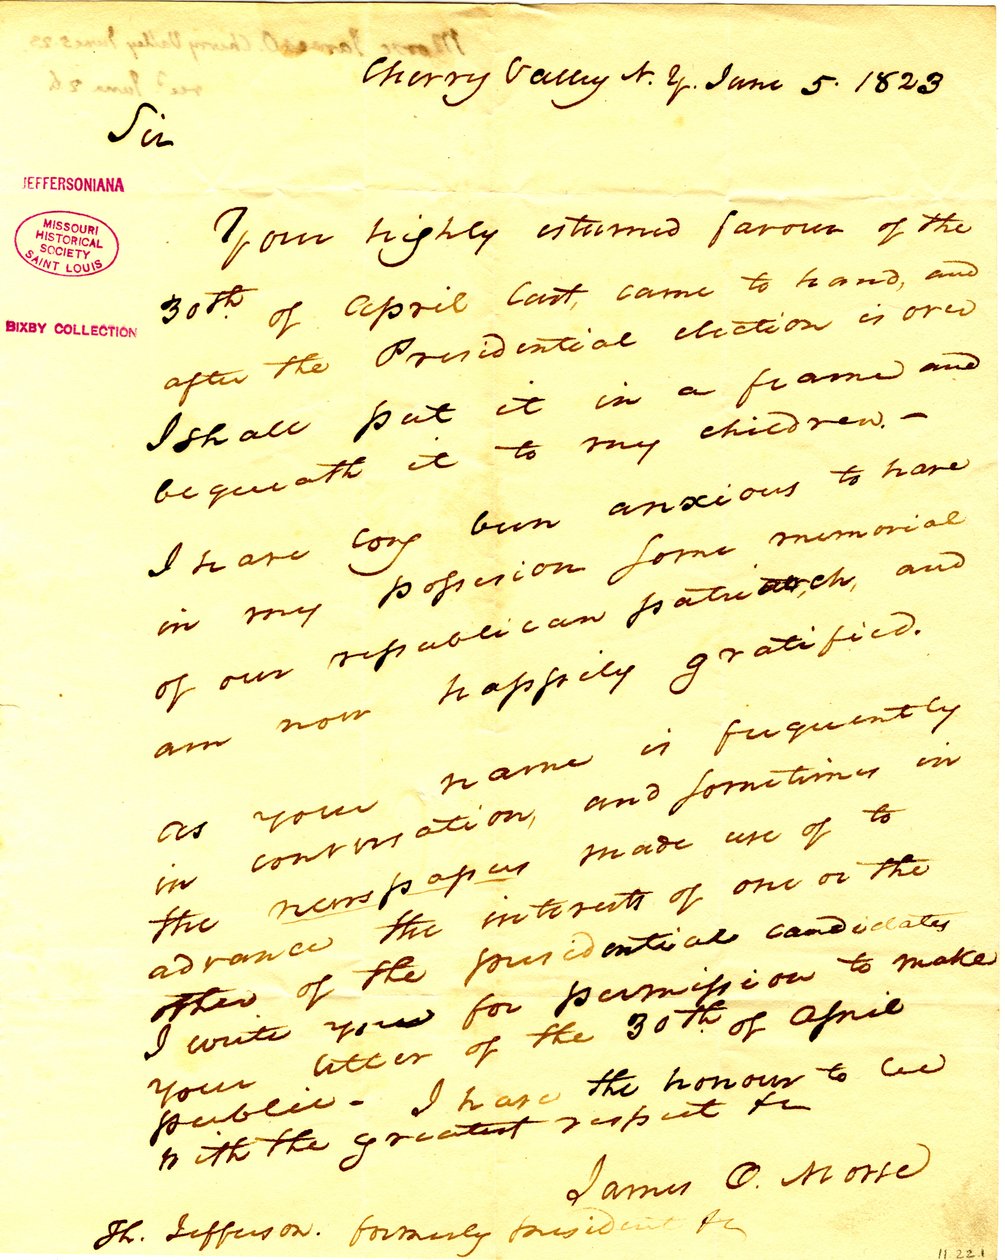 Cherry Valley N. Y. June 5. 1823
Sir
JEFFERSONIANA
MISSOURI
HISTORICAL
SOCIETY
SAINT LOUIS
BIXBY COLLECTION
Your highly esteemed favour of the
30th. of April last, came to hand, and
after the Presidential election is over
I shall put it in a frame and
bequeath it to my children. –
I have long been anxious to have
in my possession some memorial
of our republican patriarch, and
am now happily gratified.
As your name is frequently
in conversation, and sometimes in
the newspapers made use of to
advance the interests of one or the
other of the presidential candidates
I write you for permission to make
your letter of the 30th of April
public – I have the honour to be
with the greatest respect &c
James O. Morse
Th. Jefferson. formerly president &c
11 22 1